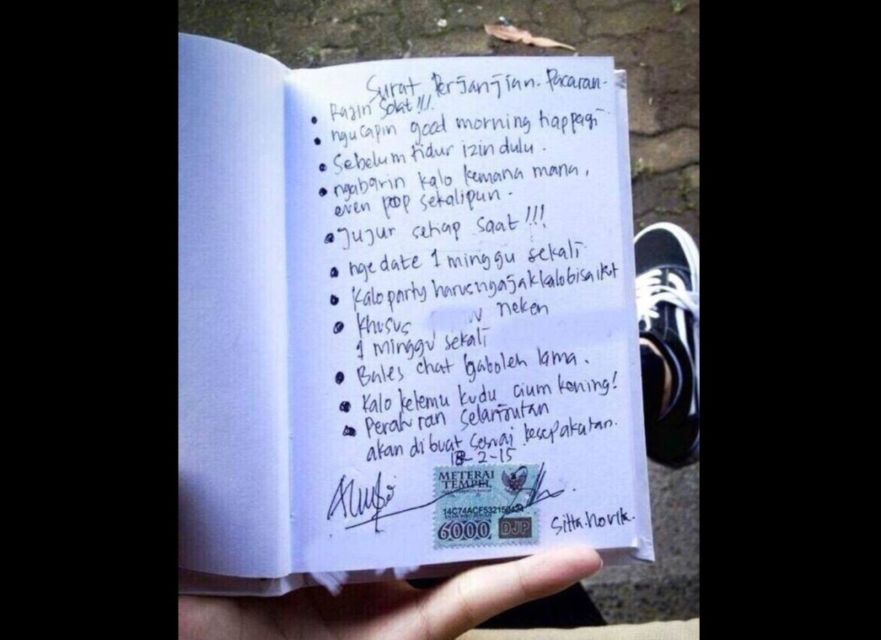 Surat Perjanjian Pacaran
• Rajin Solat!!!
• ngucapin good morning happagi
• Sebelum tidur izin dulu.
• ngabarin kalo kemana mana,
even pop sekalipun.
• Jujur setiap saat!!!
• ngedate 1 minggu sekali
• Kalo party harus ngajak kalo bisa ikut
• Khusus neken
1 minggu sekali
• Bales chat gaboleh lama.
• Kalo ketemu kudu cium kening!
• Peraturan selanjutan
akan dibuat sesuai kesepakatan.
18-2-15
METERAI
TEMPEL
6000 DJP
Sitta Novia